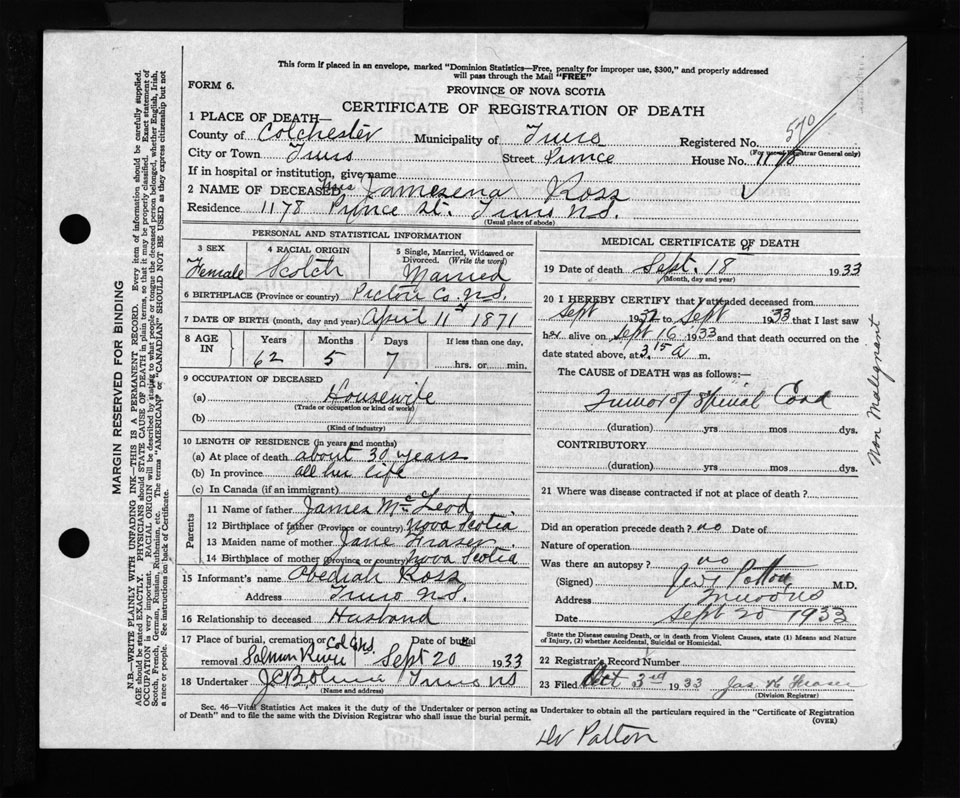 This form if placed in an envelope, marked "Dominion Statistics—Free, penalty for improper use, $300," and properly addressed
will pass through the Mail "FREE"
FORM 6.
PROVINCE OF NOVA SCOTIA
CERTIFICATE OF REGISTRATION OF DEATH
1 PLACE OF DEATH—
County of Colchester Municipality of Truro Registered No. 570
(For use of Registrar General only)
City or Town Truro Street Prince House No. 1178
If in hospital or institution, give name
2 NAME OF DECEASED Mrs Jamesena Ross
Residence 1178 Prince St. Truro N.S.
(Usual place of abode)
PERSONAL AND STATISTICAL INFORMATION
3 SEX Female
4 RACIAL ORIGIN Scotch
5 Single, Married, Widowed or Divorced. (Write the word) Married
6 BIRTHPLACE (Province or country) Pictou Co. N.S.
7 DATE OF BIRTH (month, day and year) April 11th 1871
8 AGE IN Years Months Days If less than one day,
62 5 7 hrs. or min.
9 OCCUPATION OF DECEASED
(a) Housewife
(Trade or occupation or kind of work)
(b)
(Kind of industry)
10 LENGTH OF RESIDENCE (in years and months)
(a) At place of death about 30 years
(b) In province all her life
(c) In Canada (if an immigrant)
Parents
11 Name of father James McLeod
12 Birthplace of father (Province or country) Nova Scotia
13 Maiden name of mother Jane Fraser
14 Birthplace of mother (Province or country) Nova Scotia
15 Informant's name Obediah Ross
Address Truro N.S.
16 Relationship to deceased Husband
17 Place of burial, cremation or removal Salmon River Col Co N.S. Date of burial Sept 20 1933
18 Undertaker Truro NS
(Name and address)
MEDICAL CERTIFICATE OF DEATH
19 Date of death Sept. 18 1933
(Month, day and year)
20 I HEREBY CERTIFY that I attended deceased from
Sept 1932 to Sept 1933 that I last saw
her alive on Sept 16 1933 and that death occurred on the
date stated above, at 3.15 a m.
The CAUSE of DEATH was as follows:—
Tumor of Spinal Cord
(duration) yrs mos dys.
CONTRIBUTORY
(duration) yrs mos dys.
Non Malignant
21 Where was disease contracted if not at place of death?
Did an operation precede death? no Date of
Nature of operation
Was there an autopsy? no
(Signed) Patton M.D.
Address Truro NS
Date Sept 20 1933
State the Disease causing Death, or in death from Violent Causes, state (1) Means and Nature
of Injury, (2) whether Accidental, Suicidal or Homicidal.
22 Registrar's Record Number
23 Filed Oct 3rd 1933 Jas H Fraser
(Division Registrar)
Sec. 46—Vital Statistics Act makes it the duty of the Undertaker or person acting as Undertaker to obtain all the particulars required in the "Certificate of Registration
of Death" and to file the same with the Division Registrar who shall issue the burial permit.
(OVER)
Dr Patton
MARGIN RESERVED FOR BINDING
N.B.—WRITE PLAINLY WITH UNFADING INK—THIS IS A PERMANENT RECORD. Every item of information should be carefully supplied.
AGE should be stated EXACTLY. PHYSICIANS should STATE CAUSE OF DEATH in plain terms, so that it may be properly classified. Exact statement of
OCCUPATION is very important. RACIAL ORIGIN will be described by stating to what people or tongue the deceased person belonged, whether English, Irish,
Scotch, French, German, Russian, Ruthenian, etc. The terms "AMERICAN" or "CANADIAN" SHOULD NOT BE USED as they express citizenship but not
a race or people. See instructions on back of Certificate.